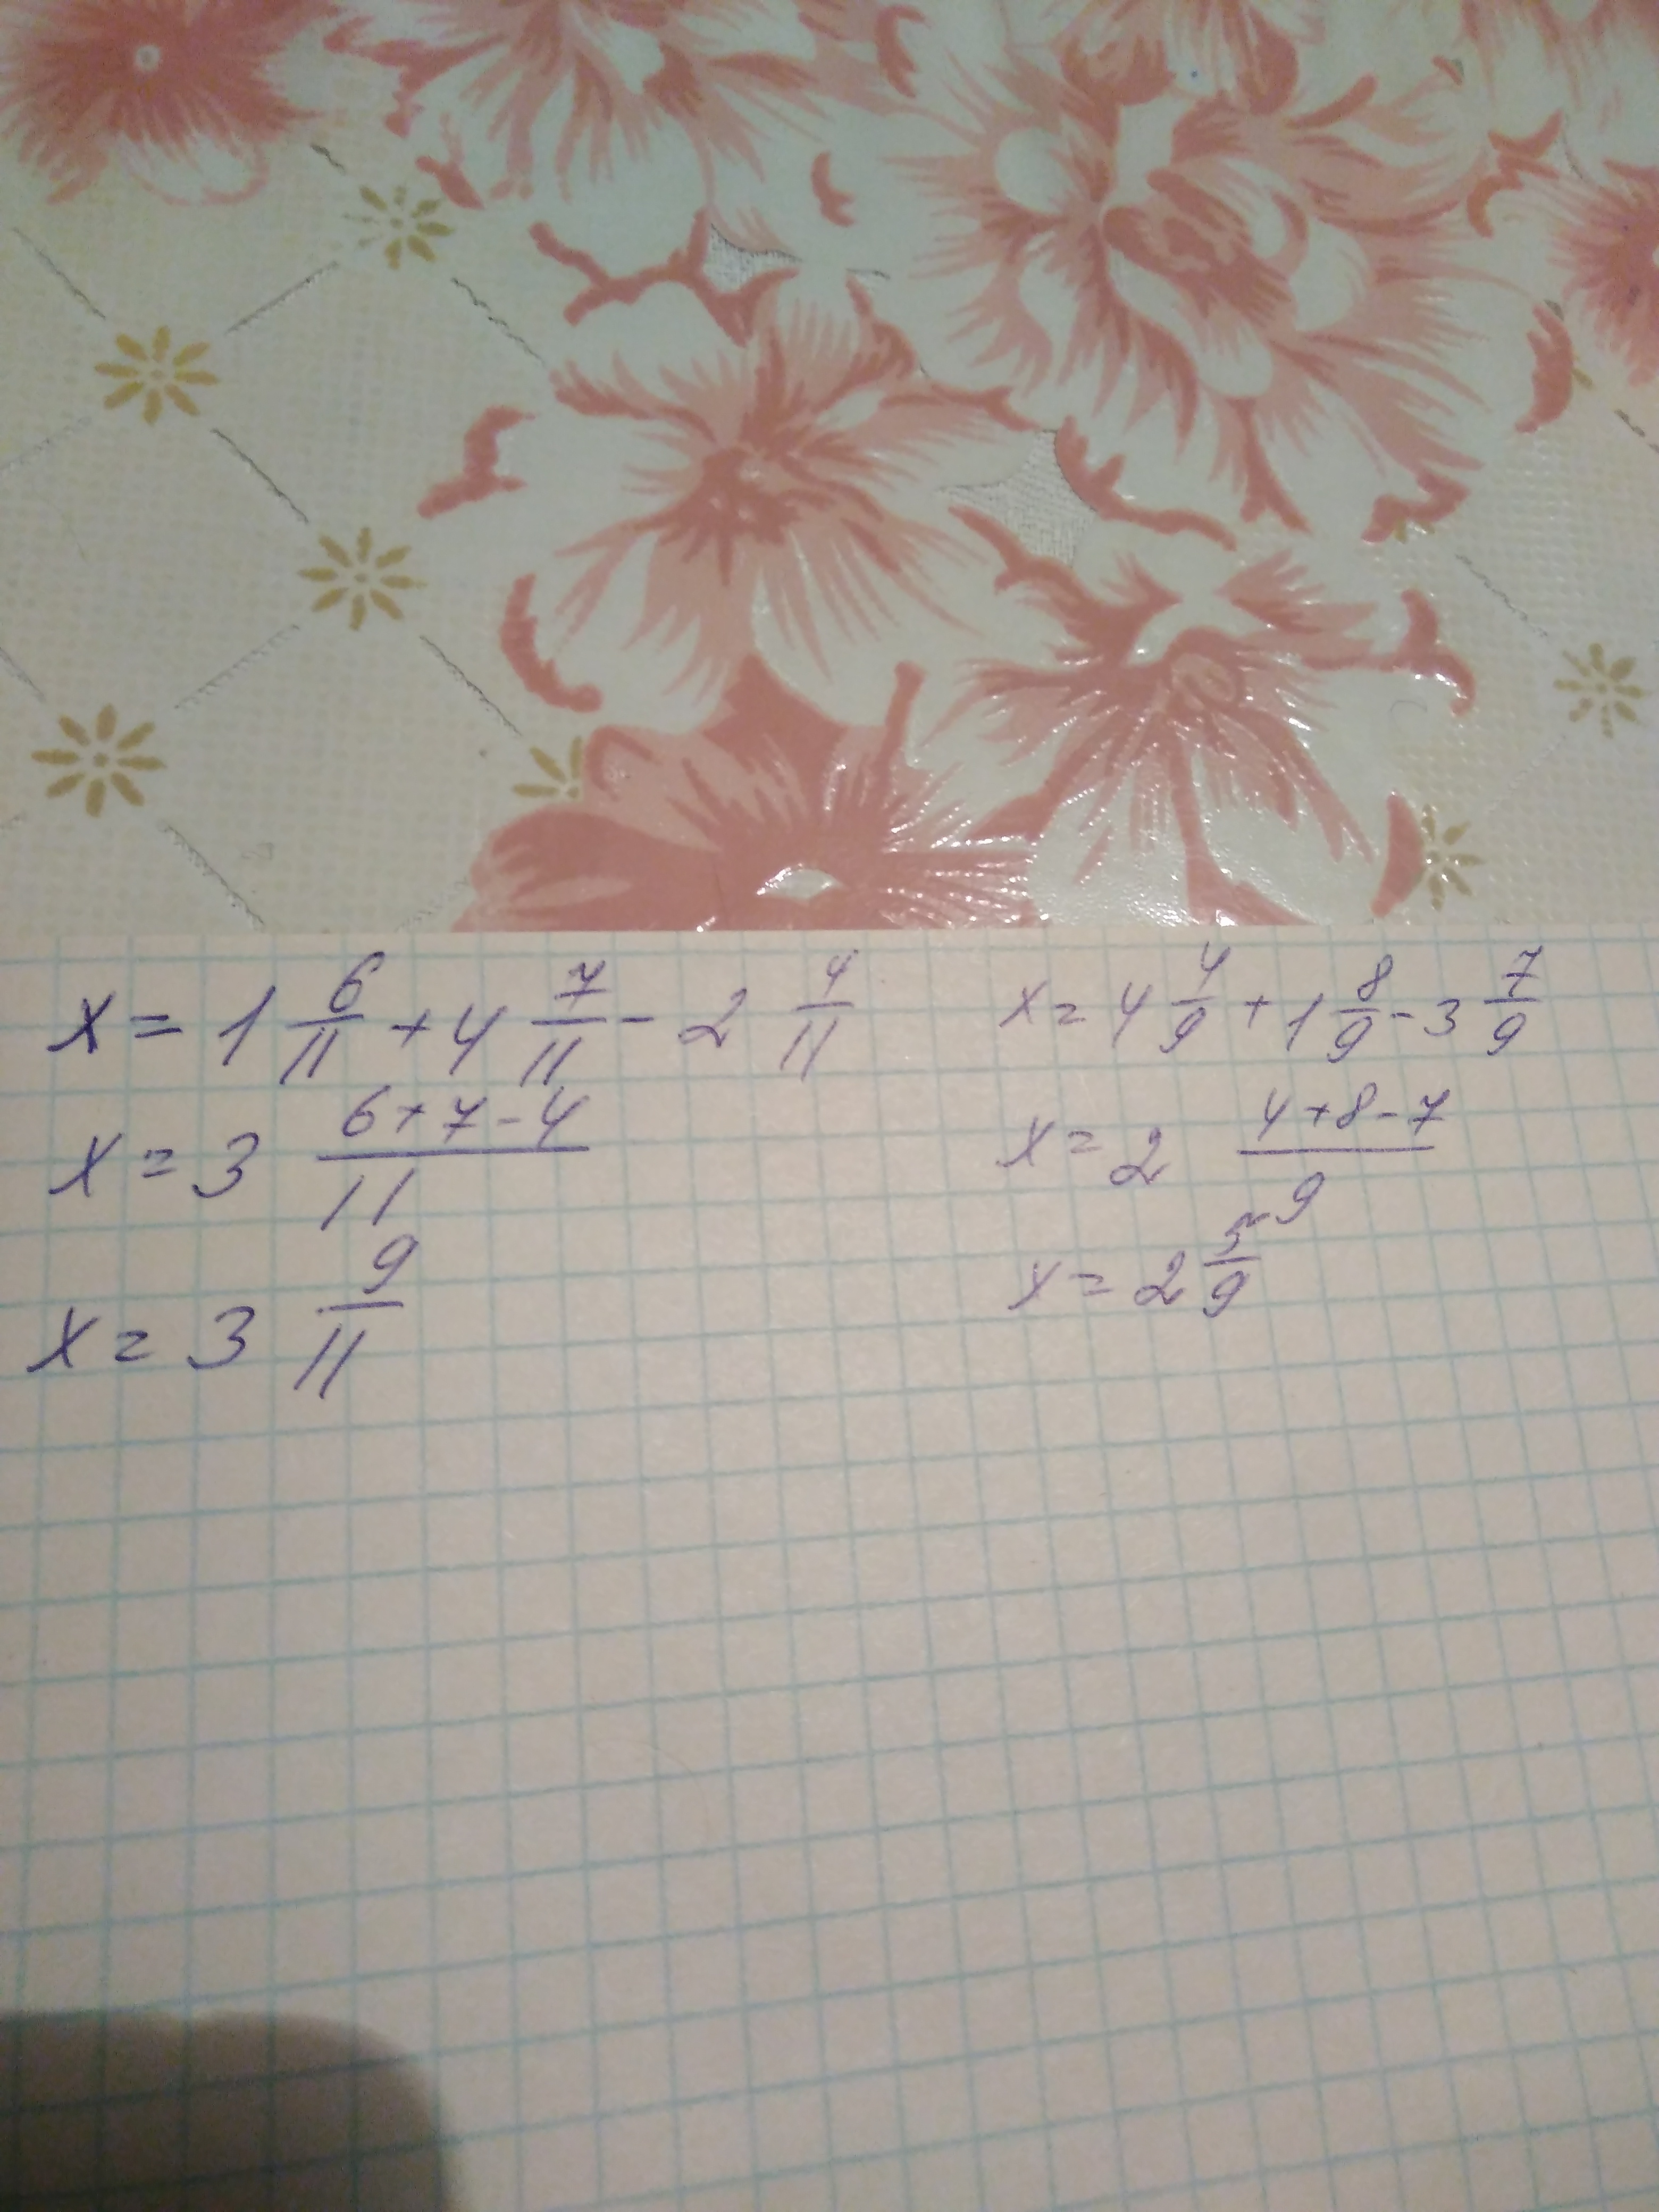 x = 1 6/11 + 4 7/11 - 2 4/11
x = 3 (6+7-4)/11
x = 3 9/11
x = 4 4/9 + 1 8/9 - 3 7/9
x = 2 (4+8-7)/9
x = 2 5/9